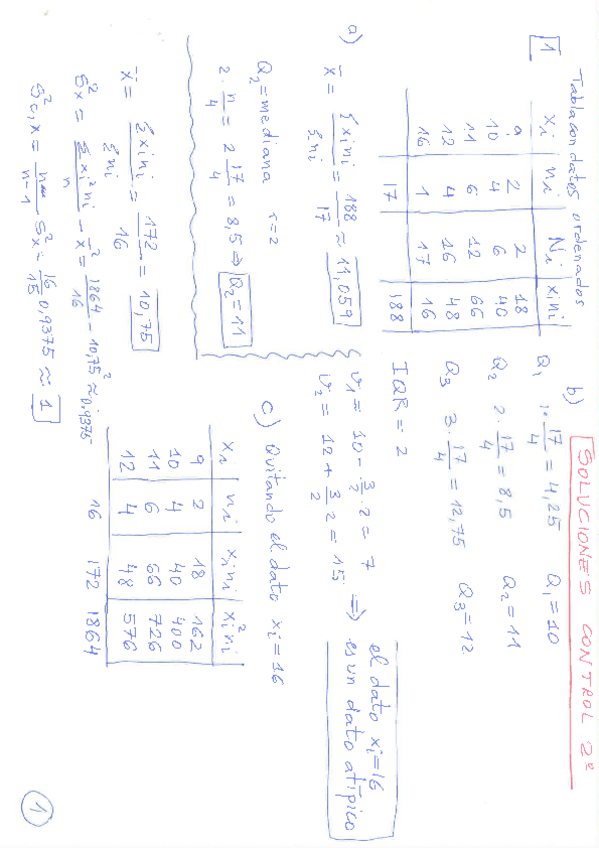 SOLUCIONES CONTROL 2º
1
Tabla con datos ordenados
xi ni Ni xini
9 2 2 18
10 4 6 40
11 6 12 66
12 4 16 48
16 1 17 16
17 188
a)
x̄ = Σxini / Σni = 188 / 17 ≈ 11,059
Q2 = mediana r=2
2·n/4 = 2 17/4 = 8,5 ⇒ Q2 = 11
b)
Q1 1·17/4 = 4,25 Q1 = 10
Q2 2·17/4 = 8,5 Q2 = 11
Q3 3·17/4 = 12,75 Q3 = 12
IQR = 2
v1 = 10 - 3/2·2 = 7
v2 = 12 + 3/2 2 = 15
⇒ el dato xi=16
es un dato atípico
c) Quitando el dato xi = 16
xi ni xini xi²ni
9 2 18 162
10 4 40 400
11 6 66 726
12 4 48 576
16 172 1864
x̄ = Σxini / Σni = 172 / 16 = 10,75
S²x = Σxi²ni / n - x̄² = 1864 / 16 - 10,75² ≈ 0,9375
S²c,x = n / n-1 S²x = 16/15 0,9375 ≈ 1
1